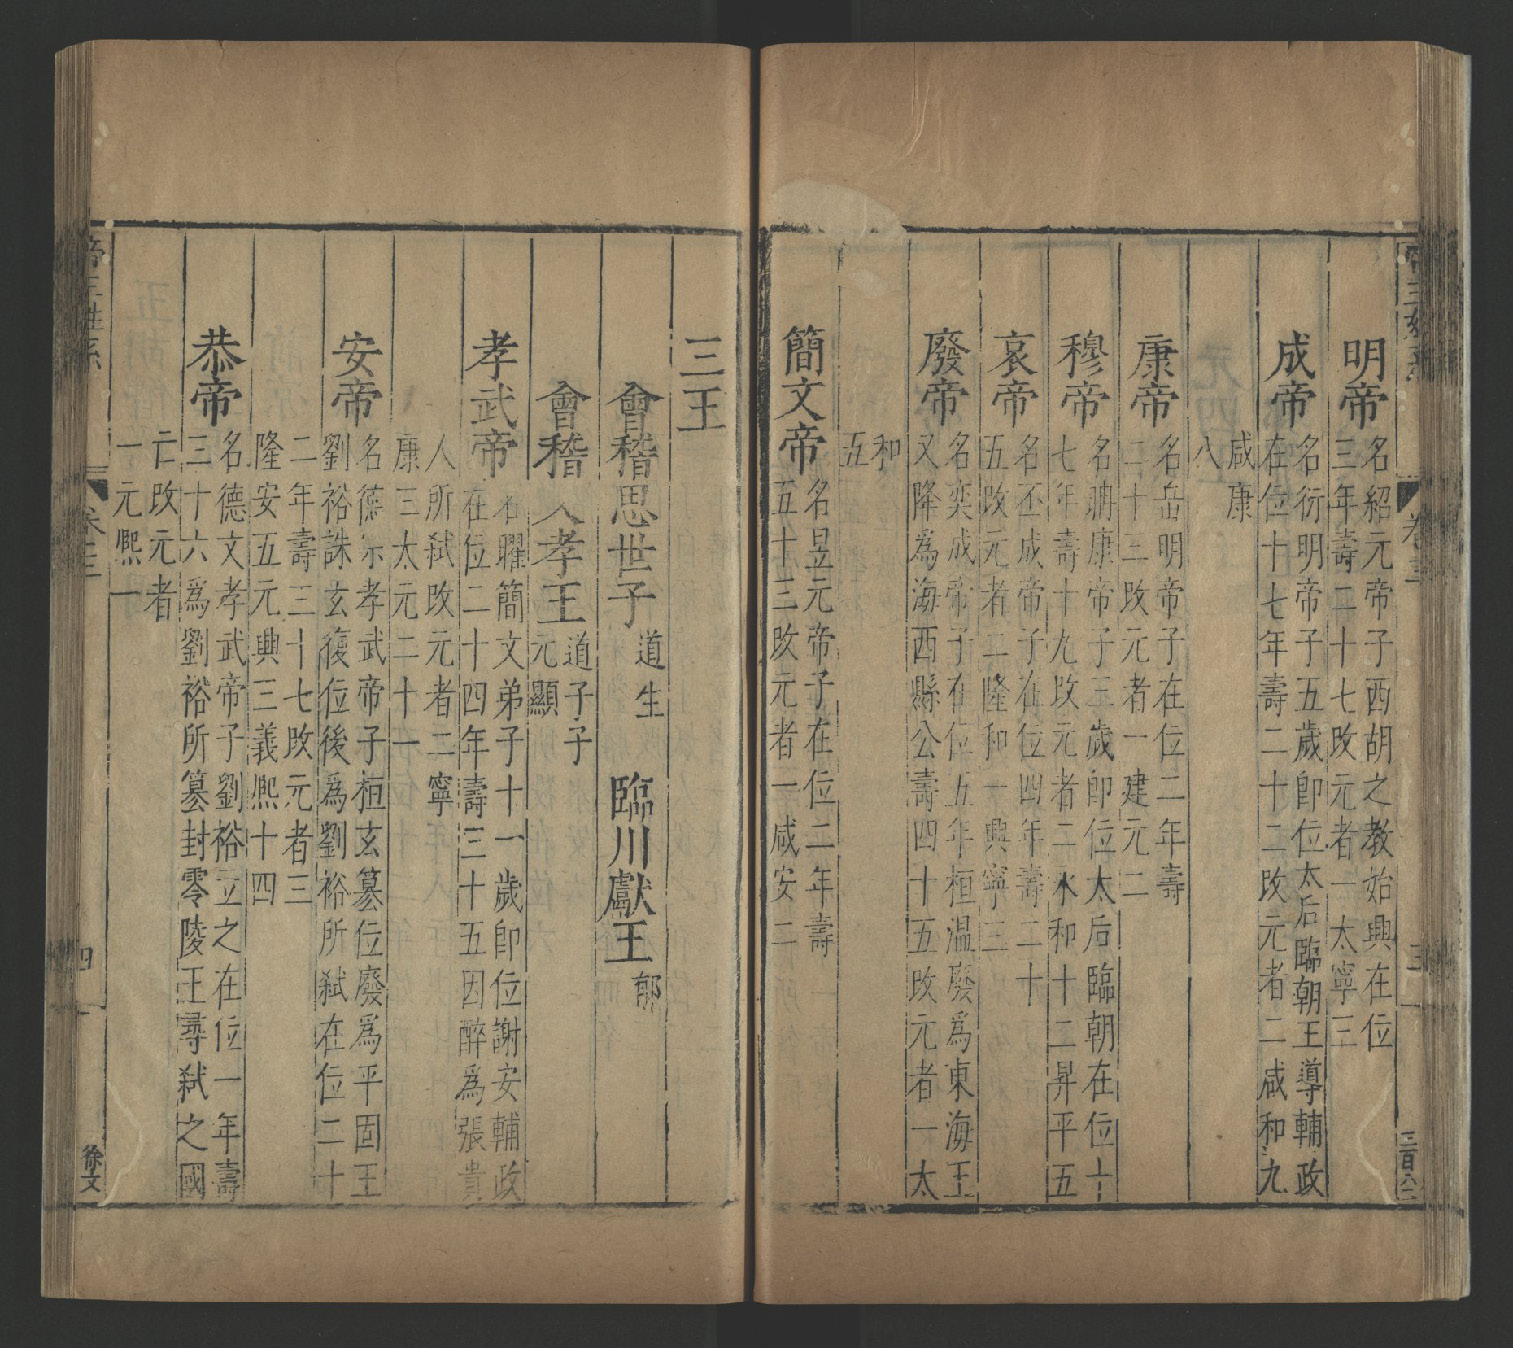 明帝
名紹元帝子西胡之教始興在位
三年壽二十七改元者一太寧三
成帝
名衍明帝子五歲即位太后臨朝王導輔政
在位十七年壽二十二改元者二咸和九
咸康
八
康帝
名岳明帝子在位二年壽
二十三改元者一建元二
穆帝
名聃康帝子三歲即位太后臨朝在位十
七年壽十九改元者二永和十二昇平五
哀帝
名丕成帝子在位四年壽二十
五改元者二隆和一興寧三
廢帝
名奕成帝子在位五年桓溫廢爲東海王
又降爲海西縣公壽四十五改元者一太
和
五
簡文帝
名昱元帝子在位二年壽
五十三改元者一咸安二
卷三
三
三百六二
三王
會稽思世子
道生
臨川獻王
郁
會稽文孝王
道子子
元顯
孝武帝
名曜簡文弟子十一歲即位謝安輔政
在位二十四年壽三十五因醉爲張貴
人所弑改元者二寧
康三太元二十一
安帝
名德宗孝武帝子桓玄篡位廢爲平固王
劉裕誅玄復位後爲劉裕所弑在位二十
二年壽三十七改元者三
隆安五元興三義熙十四
恭帝
名德文孝武帝子劉裕立之在位一年壽
三十六爲劉裕所篡封零陵王尋弑之國
亡改元者
一元熙一
卷三
四
徐文